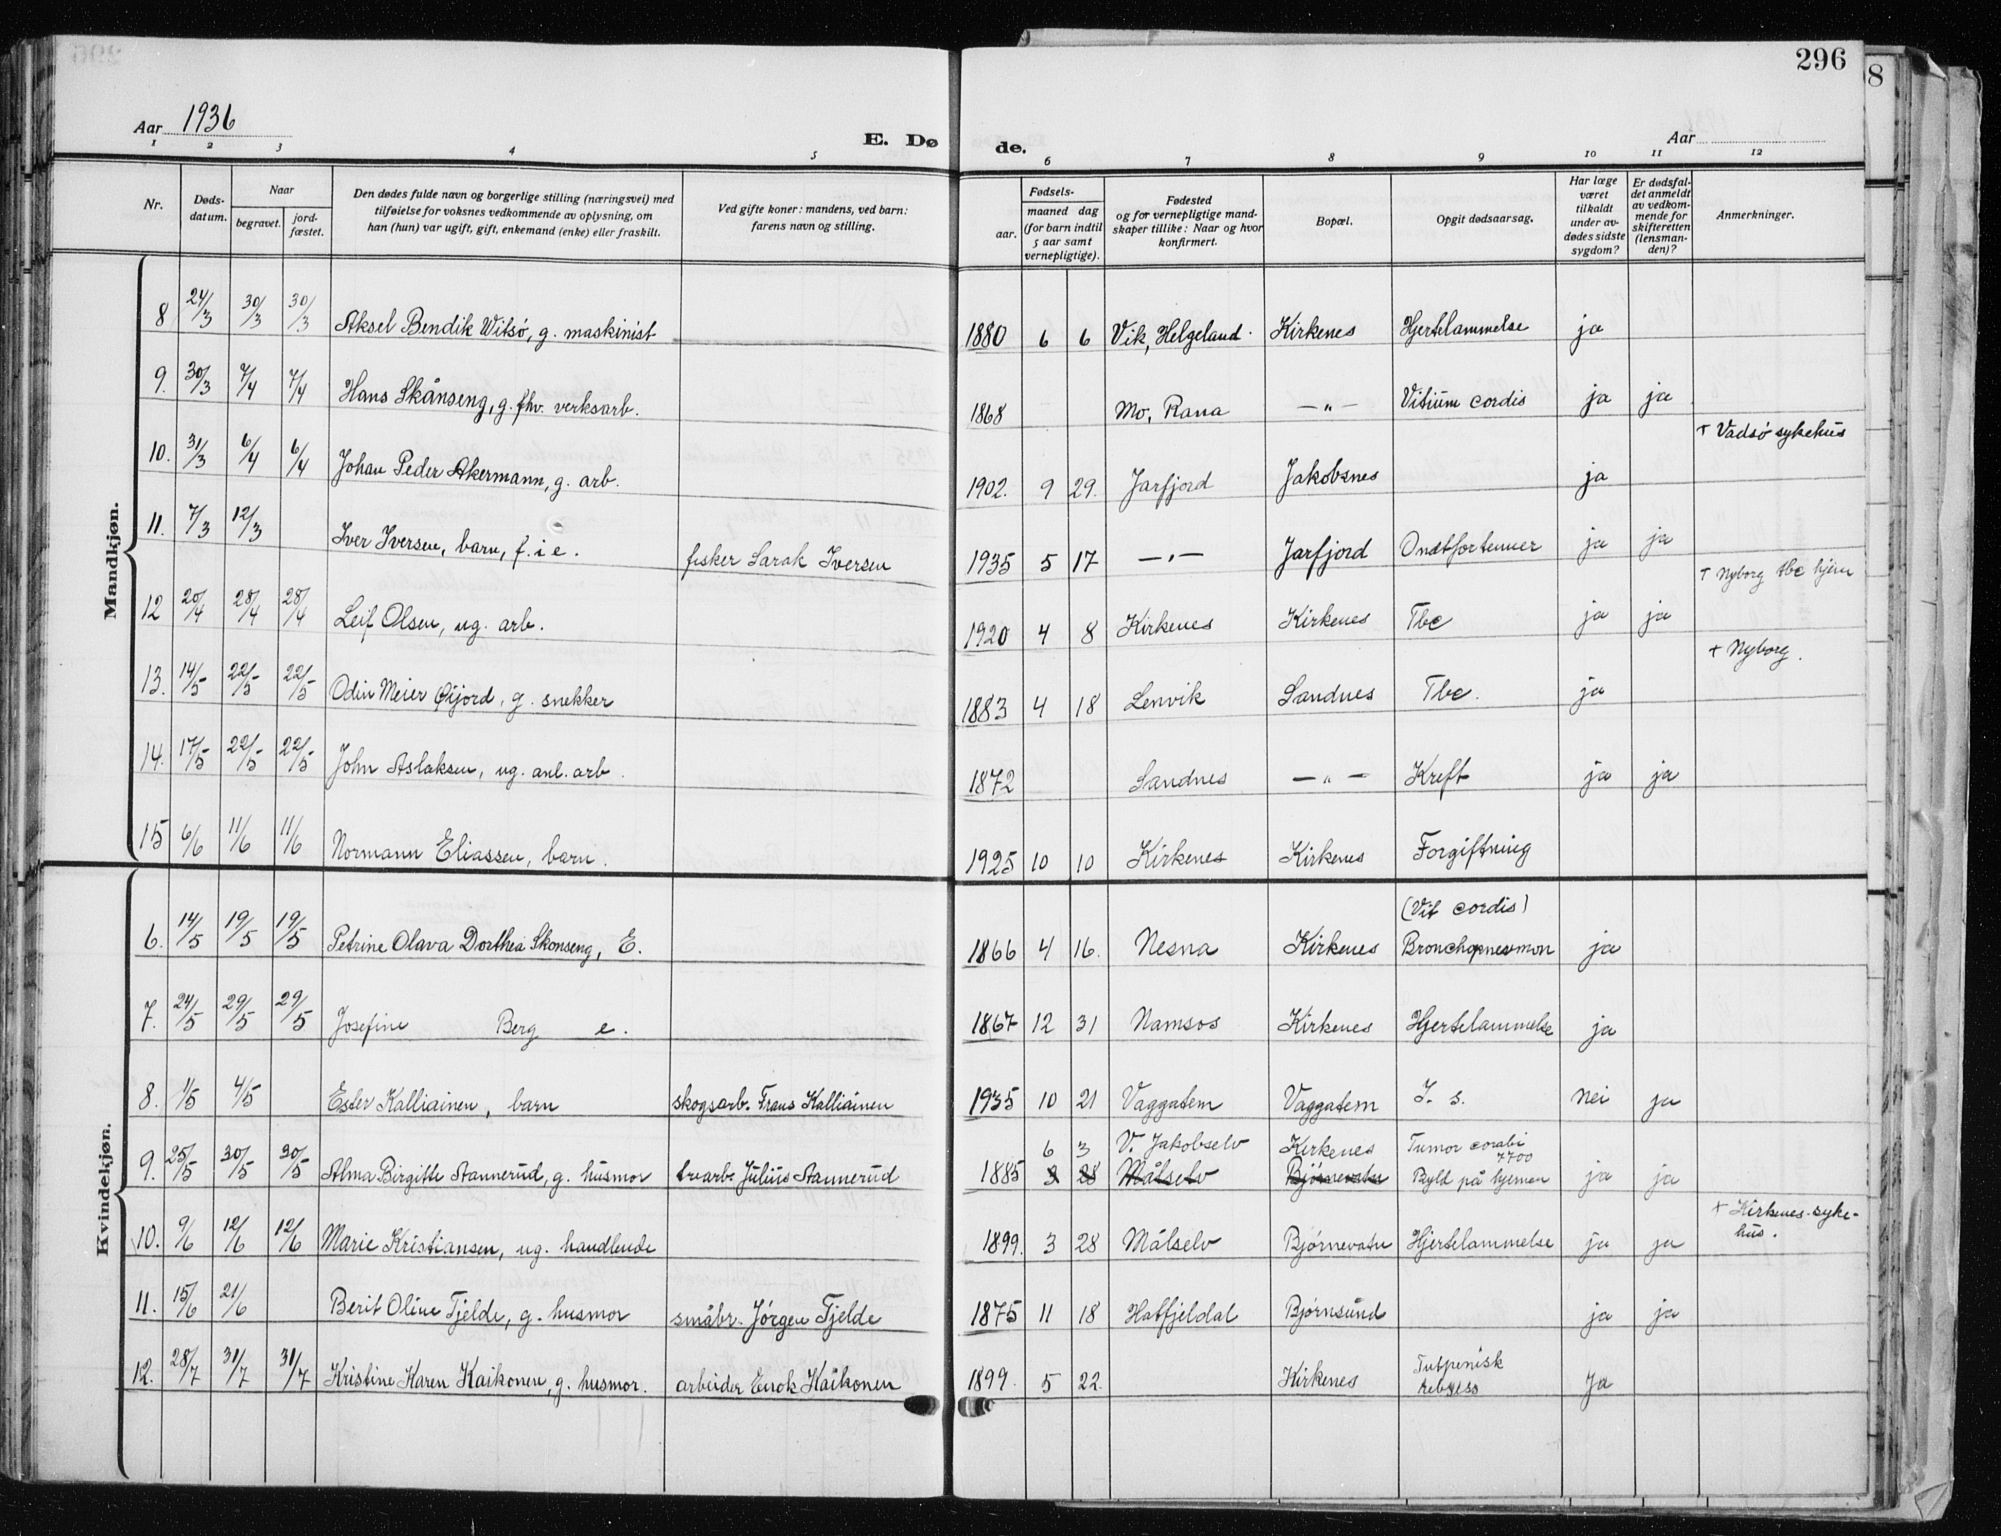 296
8
Aar 1936
E. Dø
de.
Aar
1 2 3 4 5 6 7 8 9 10 11 12
Nr.
Døds-
datum.
Naar
begravet.
jord-
fæstet.
Den dødes fulde navn og borgerlige stilling (næringsvei) med
tilføielse for voksnes vedkommende av oplysning, om
han (hun) var ugift, gift, enkemand (enke) eller fraskilt.
Ved gifte koner: mandens, ved barn:
farens navn og stilling.
Fødsels-
aar.
maaned dag
(for barn indtil
5 aar samt
vernepligtige).
Fødested
og for vernepligtige mand-
skaper tillike: Naar og hvor
konfirmert.
Bopæl.
Opgit dødsaarsag.
Har læge
været
tilkaldt
under av-
dødes sidste
sygdom?
Er dødsfal-
det anmeldt
av vedkom-
mende for
skifteretten
(lensman-
den)?
Anmerkninger.
Mandkjøn.
8 24/3 30/3 30/3 Aksel Bendik Witsø, g. maskinist 1880 6 6 Vik, Helgeland. Kirkenes Hjertelammelse ja
9. 30/3 7/4 7/4 Hans Skånseng, g. fhv. verksarb. 1868 Mo, Rana —„— Vitium cordis ja ja
10. 31/3 6/4 6/4 Johan Peder Akermann, g. arb. 1902. 9 29. Jarfjord Jakobsnes ja + Vadsø sykehus
11. 7/3 12/3 Iver Iversen, barn, f. i e. fisker Sarak Iversen 1935 5 17 —„— Jarfjord Ondtfortenner ja ja
12 20/4 28/4 28/4 Leif Olsen, ug. arb. 1920 4 8 Kirkenes Kirkenes Tbc ja ja + Nyborg tbc hjem
13. 14/5 22/5 22/5 Odin Meier Øijord, g. snekker 1883 4 18 Lenvik Sandnes Tbc. ja + Nyborg.
14. 17/5 22/5 22/5 John Aslaksen, ug. anl. arb. 1872 Sandnes —„— Kreft ja ja
15 6/6 11/6 11/6 Normann Eliassen, barn. 1925 10 10 Kirkenes Kirkenes Forgiftning
Kvindekjøn.
(Vit cordis)
6. 14/5 19/5 19/5 Petrine Olava Dorthea Skonseng, E. 1866 4 16. Nesna Kirkenes Bronchopneumon ja
7. 24/5 29/5 29/5 Josefine Berg e. 1867 12 31 Namsos Kirkenes Hjertelammelse ja
8. 1/5 4/5 Ester Kalliainen, barn skogsarb. Frans Kalliainen 1935 10 21 Vaggatem Vaggatem I. s. nei ja
6 3 V. Jakobselv Kirkenes Tumor
9. 25/5 30/5 30/5 Alma Birgitte Stannerud, g. husmor Julius Stannerud 1885 3 28 Målselv Bjørnevatn Byld på hjernen ja ja
10. 9/6 12/6 12/6 Marie Kristiansen, ug. handlende 1899. 3 28 Målselv Bjørnevatn Hjertelammelse ja ja + Kirkenes syke-
hus.
11. 15/6 21/6 Berit Oline Tjelde, g. husmor småbr. Jørgen Tjelde 1875 11 18 Hatfjeldal Bjørnsund ja ja
12. 28/7 31/7 31/7 Kristine Karen Kaikonen, g. husmor. arbeider Enok Kaikonen 1899. 5 22. Kirkenes Ja